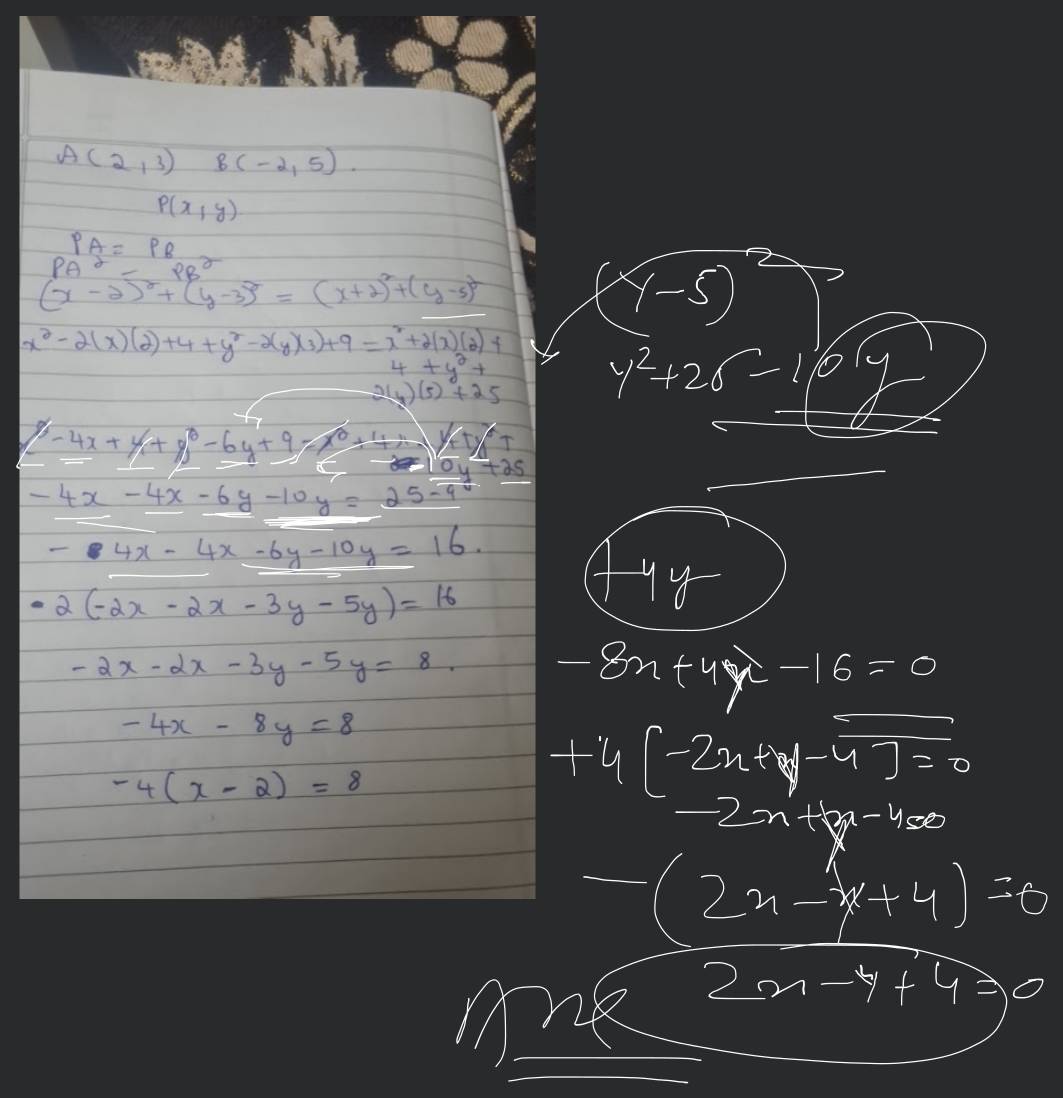 A(2,3) B(-2,5).
P(x,y)
PA = PB
PA² = PB²
(x-2)²+(y-3)² = (x+2)²+(y-5)²
x²-2(x)(2)+4+y²-2(y)(3)+9 = x²+2(x)(2)+
4 + y² +
2(y)(5) +25
-4x + 4 + y² -6y + 9 = x² +
10y +25
-4x -4x -6y -10y = 25-9
- 4x - 4x -6y -10y = 16.
2(-2x -2x -3y -5y) = 16
-2x -2x -3y -5y = 8.
-4x - 8y = 8
-4(x-2) = 8
(y-5)²
y²+25-10y
+4y
-8x+4y -16=0
+4[-2x+y-4]=0
-2x+y-4=0
-(2x-y+4)=0
2x-y+4=0
Ans